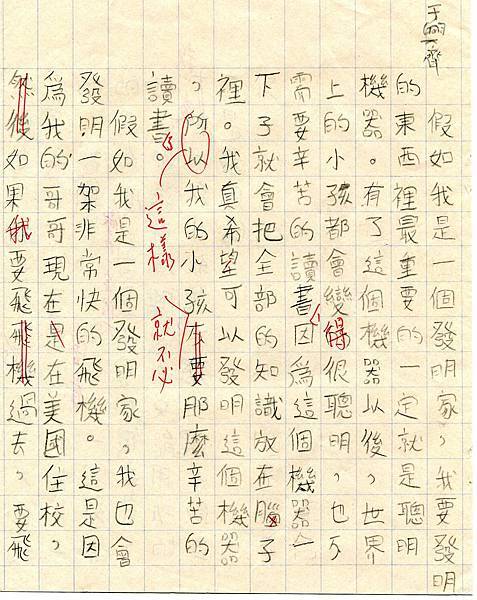 于齊
假如我是一個發明家，我要發明
的東西裡最重要的一定就是聰明
機器。有了這個機器以後。世界
上的小孩都會變得很聰明，也不
需要辛苦的讀書，因為這個機器一
下子就會把全部的知識放在腦子
裡。我真希望可以發明這個機器
，所以我的小孩不要那麼辛苦的
這樣
就不必
讀書。
假如我是一個發明家，我也會
發明一架非常快的飛機。這是因
為我的哥哥現在是在美國住校，
然後如果我要飛飛機過去，要飛